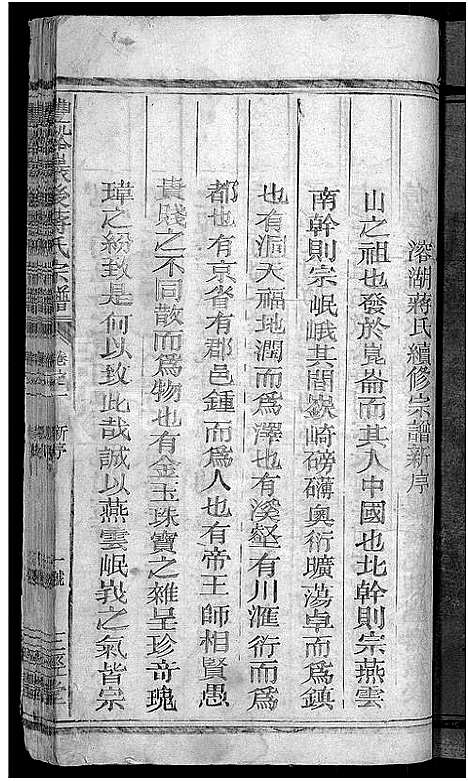 溶湖蔣氏續修宗譜新序
山之祖也發於崑崙而其入中國也北幹則宗燕雲
南幹則宗岷峨其間嶔崎磅礴奧衍曠蕩卓而為鎮
也有洞天福地潤而為澤也有溪壑有川滙衍而為
都也有京省有郡邑鍾而為人也有帝王師相賢愚
貴賤之不同散而為物也有金玉珠寶之雜呈珍奇瑰
瑋之紛致是何以致此哉誠以燕雲岷峩之氣皆宗
後蔣氏宗譜
卷之一
新序
一號
三徑堂